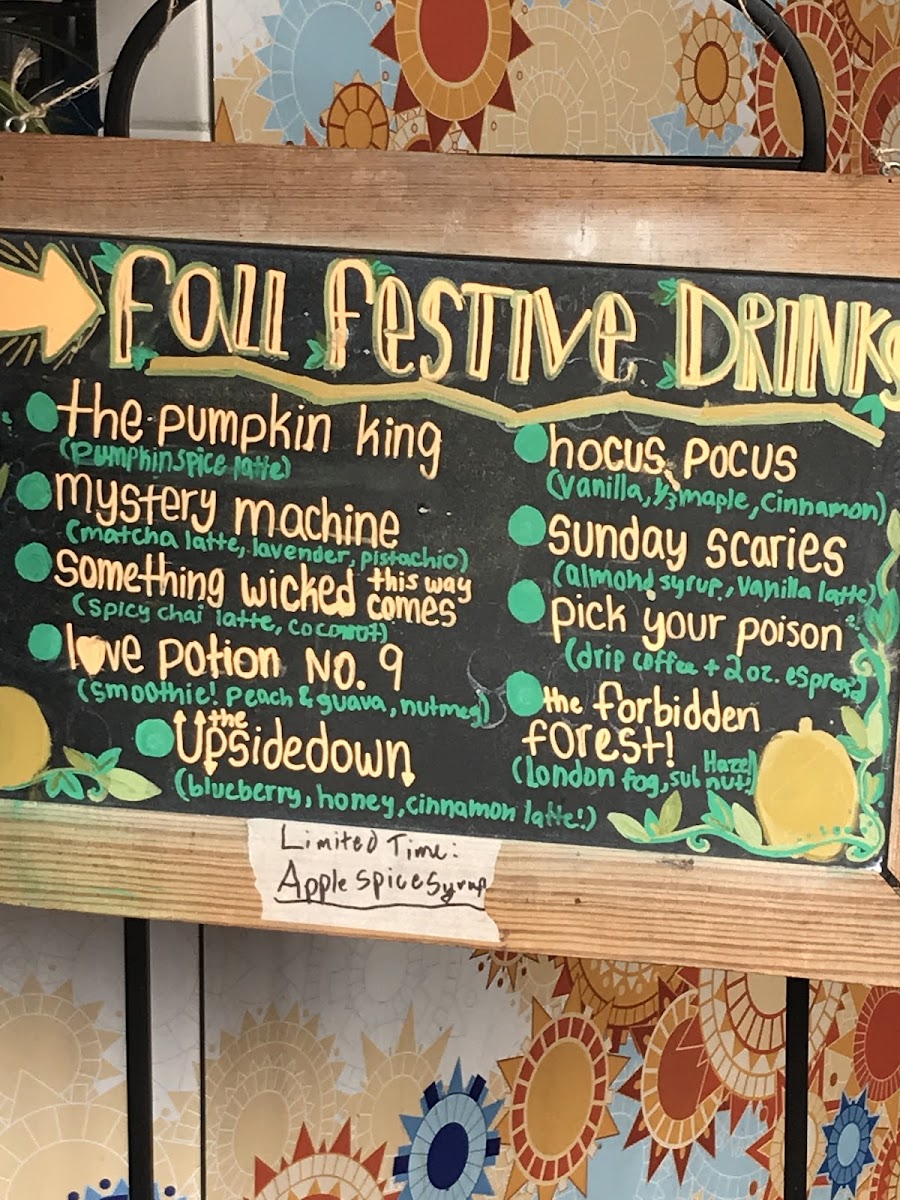 Fall Festive Drinks
the pumpkin king
(pumpkin spice latte)
mystery machine
(matcha latte, lavender, pistachio)
something wicked this way
comes
(spicy chai latte, coconut)
love potion No. 9
(smoothie! peach & guava, nutmeg)
the
upsidedown
(blueberry, honey, cinnamon latte!)
hocus pocus
(vanilla, 1/3 maple, cinnamon)
sunday scaries
(almond syrup, vanilla latte)
pick your poison
(drip coffee + 2 oz. espresso)
the forbidden
forest!
(London fog, sub Hazel
nut!)
Limited Time:
Apple Spice Syrup